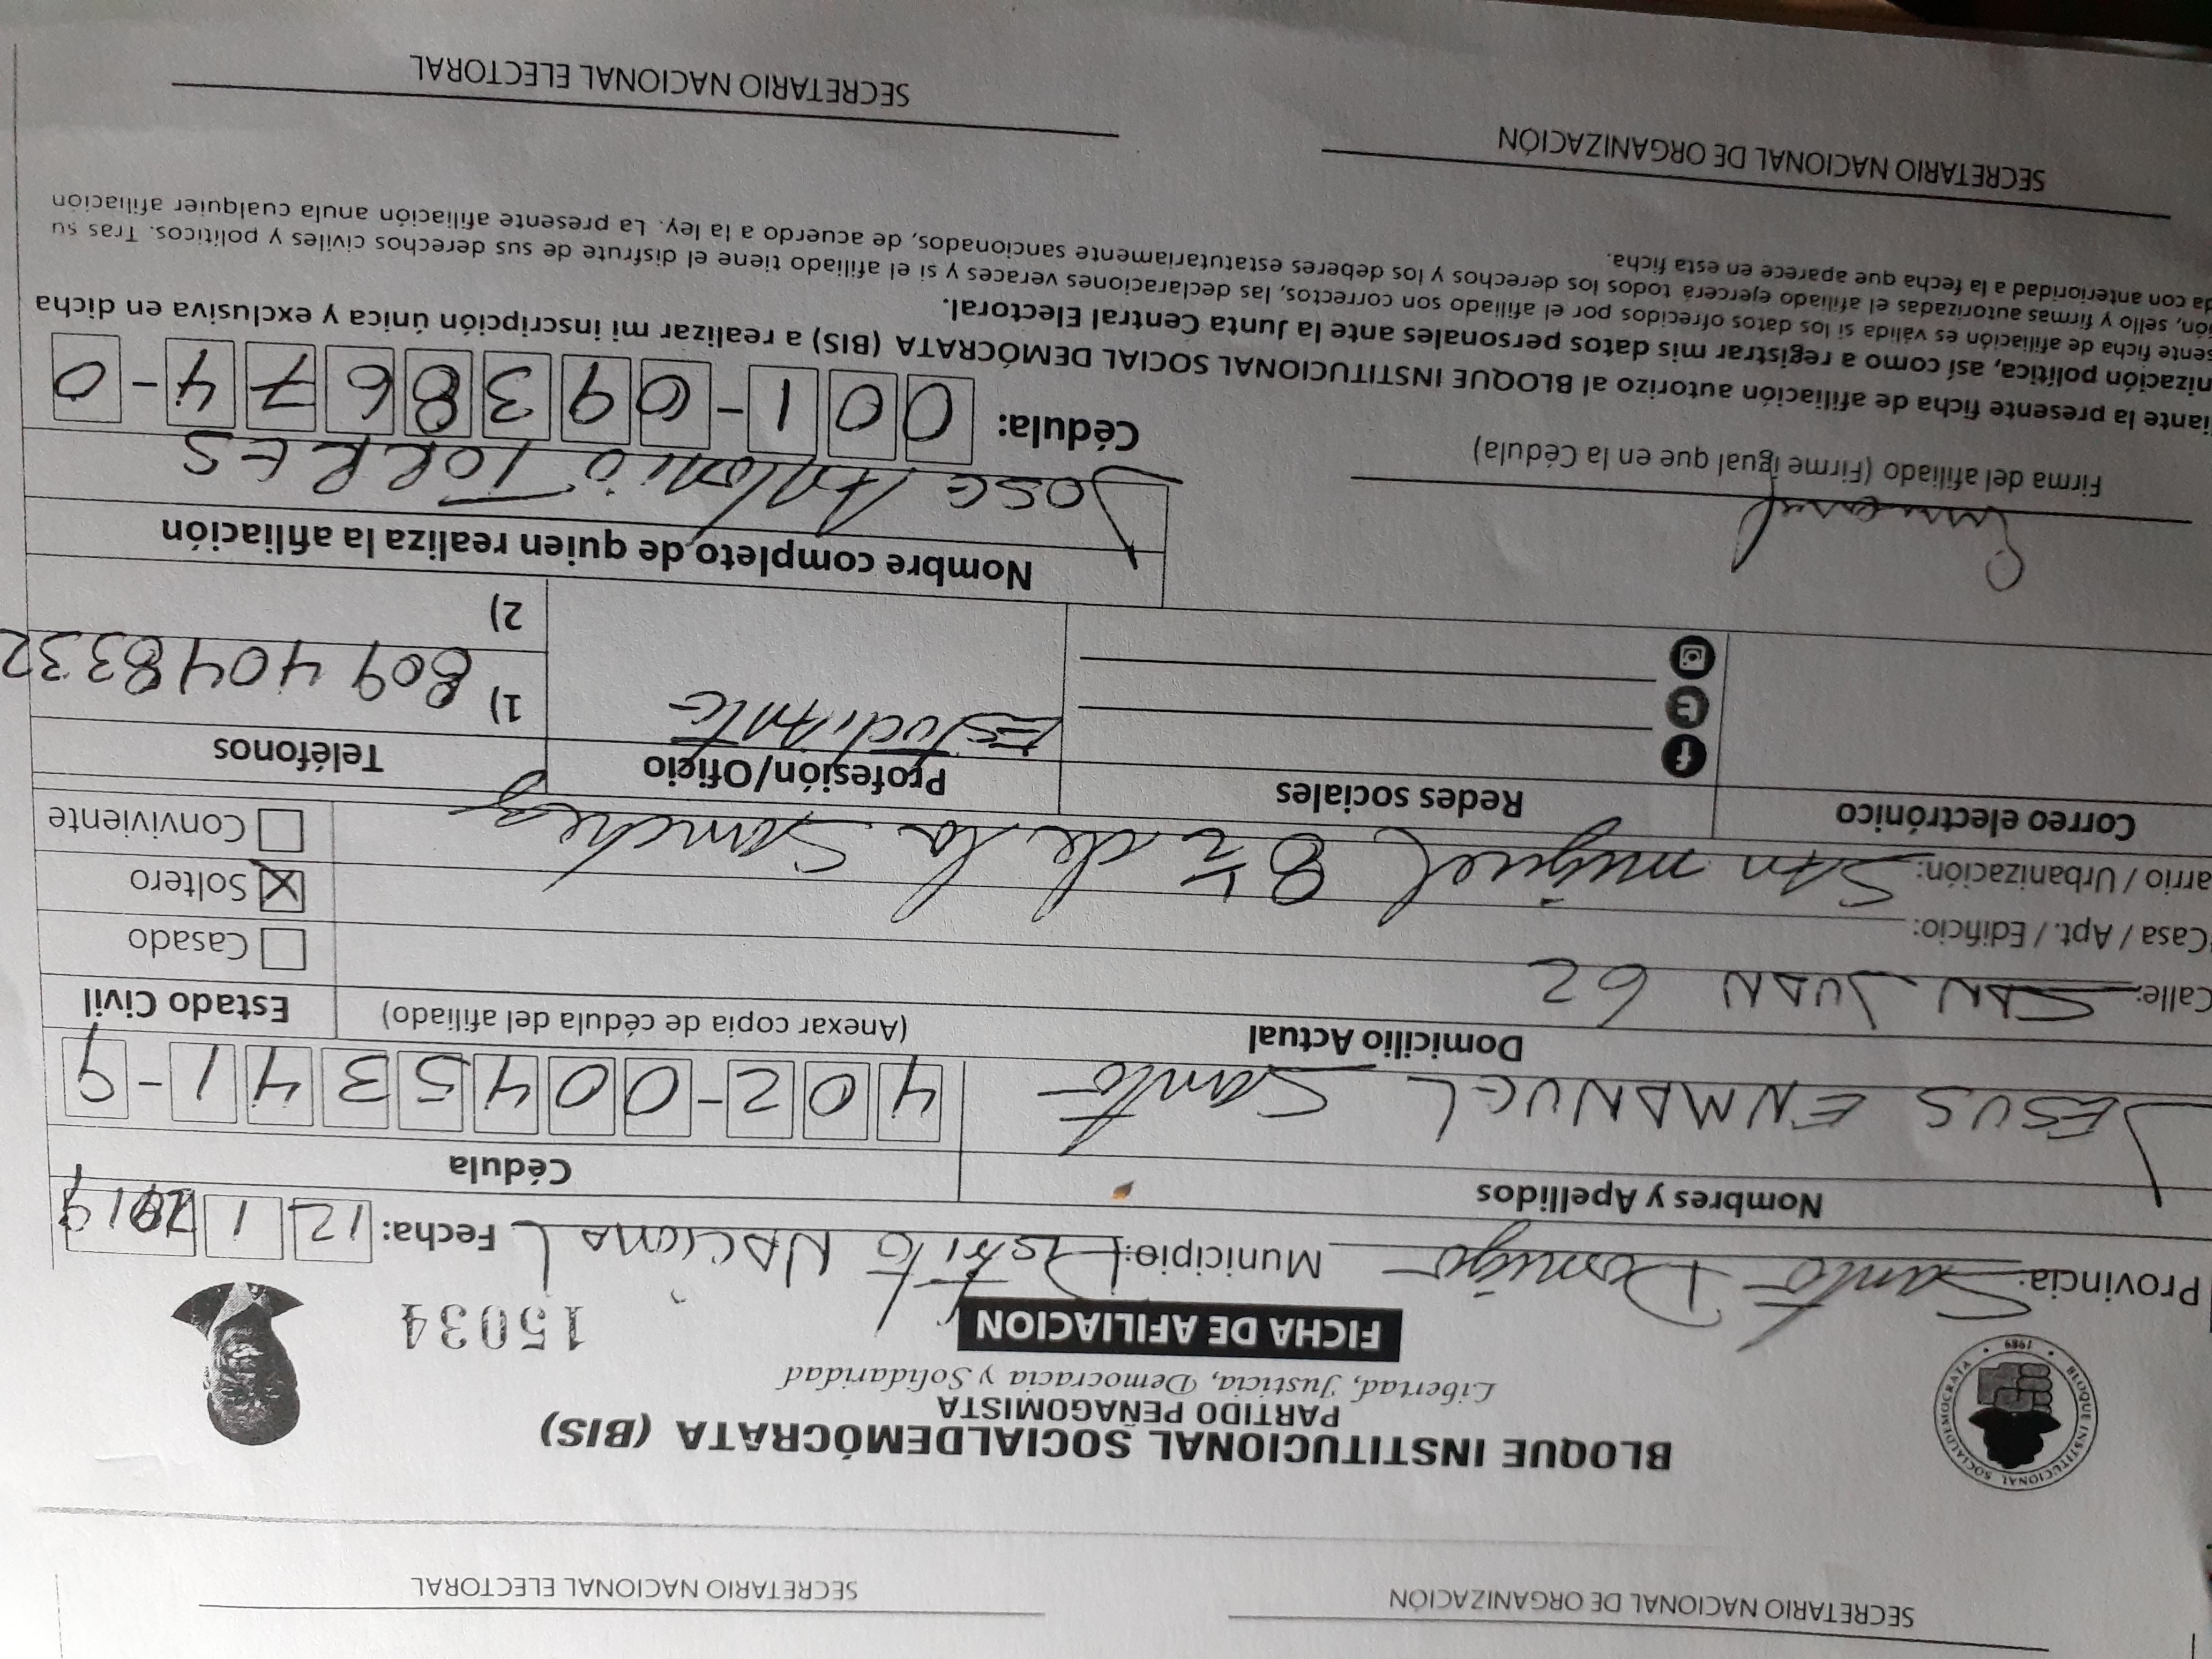 SECRETARIO NACIONAL DE ORGANIZACIÓN
SECRETARIO NACIONAL ELECTORAL
BLOQUE INSTITUCIONAL SOCIALDEMÓCRATA • 1989 •
BLOQUE INSTITUCIONAL SOCIALDEMÓCRATA (BIS)
PARTIDO PEÑAGOMISTA
Libertad, Justicia, Democracia y Solidaridad
FICHA DE AFILIACION
15034
Provincia: Santo Domigo Municipio: Distrito NACIONAL Fecha: 12 1 2019
Nombres y Apellidos
Cédula
JESUS ENMANUEL Santo
402-0045341-9
Domicilio Actual
(Anexar copia de cédula del afiliado)
Estado Civil
Calle: SAN JUAN 62
Casado
Casa / Apt. / Edificio:
Soltero X
arrio / Urbanización: SAn miguel 8 ½ de la Sanchez
Conviviente
Correo electrónico
Redes sociales
Profesión/Oficio
Teléfonos
EstudiAnte
1) 809 4048332
2)
Nombre completo de quien realiza la afiliación
Jose Antonio TORRES
Firma del afiliado (Firme igual que en la Cédula)
Cédula: 001-0938674-0
iante la presente ficha de afiliación autorizo al BLOQUE INSTITUCIONAL SOCIAL DEMÓCRATA (BIS) a realizar mi inscripción única y exclusiva en dicha
nización política, así como a registrar mis datos personales ante la Junta Central Electoral.
sente ficha de afiliación es válida si los datos ofrecidos por el afiliado son correctos, las declaraciones veraces y si el afiliado tiene el disfrute de sus derechos civiles y políticos. Tras su
ión, sello y firmas autorizadas el afiliado ejercerá todos los derechos y los deberes estatutariamente sancionados, de acuerdo a la ley. La presente afiliación anula cualquier afiliación
da con anterioridad a la fecha que aparece en esta ficha.
SECRETARIO NACIONAL DE ORGANIZACIÓN
SECRETARIO NACIONAL ELECTORAL